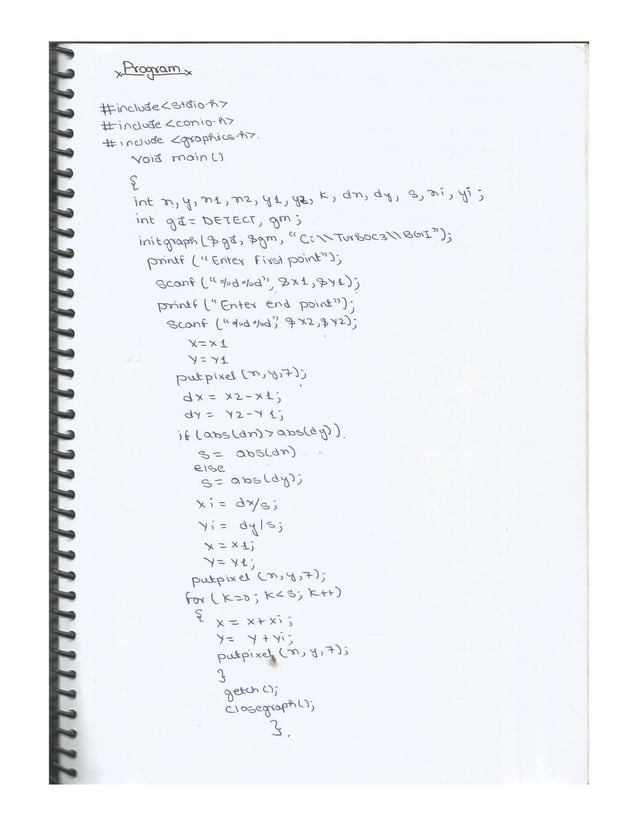 x Program x
#include<stdio.h>
#include<conio.h>
#include <graphics.h>.
void main()
{
int x, y, x1, x2, y1, y2, k, dx, dy, s, xi, yi ;
int gd= DETECT, gm ;
initgraph(&gd, &gm, "C:\\TurboC3\\BGI");
printf ("Enter first point");
scanf ("%d%d", &x1,&y1);
printf ("Enter end point");
scanf ("%d%d", &x2,&y2);
x=x1
y=y1
putpixel (x,y,7);
dx = x2-x1;
dy = y2-y1;
if (abs(dx)>abs(dy)).
s= abs(dx)
else
s= abs(dy);
xi= dx/s;
yi= dy/s;
x=x1;
y=y1;
putpixel (x,y,7);
for ( k=0; k<s; k++)
{
x = x+xi;
y= y+yi;
putpixel (x, y,7);
}
getch();
closegraph();
}.